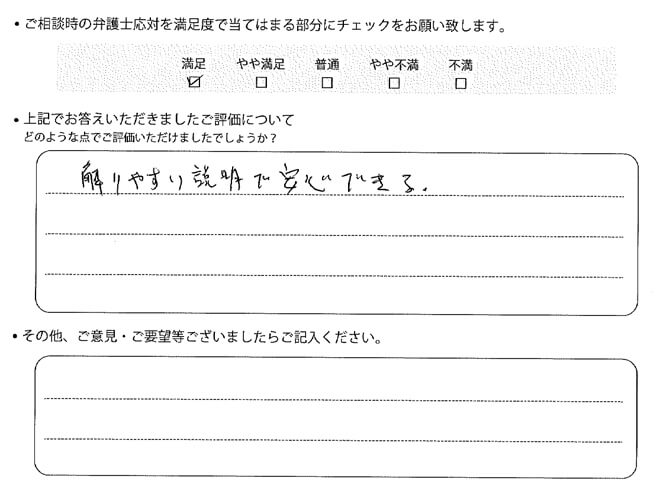 • ご相談時の弁護士応対を満足度で当てはまる部分にチェックをお願い致します。
満足 やや満足 普通 やや不満 不満
☑ □ □ □ □
• 上記でお答えいただきましたご評価について
どのような点でご評価いただけましたでしょうか？
解りやすい説明で安心できる。
• その他、ご意見・ご要望等ございましたらご記入ください。